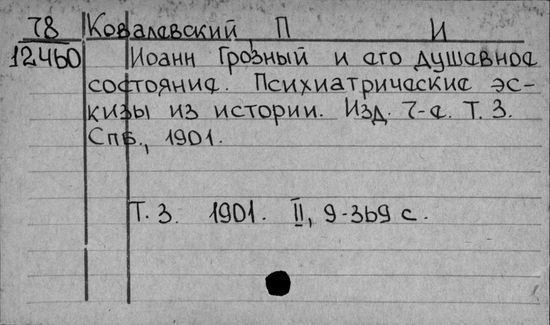 78 Ковалевский, П И
12460 Иоанн Грозный и его душевное
состояние. Психиатрические эс-
кизы из истории. Изд. 7-е. Т. 3.
Спб., 1901.
Т. 3. 1901. II, 9-369 с.